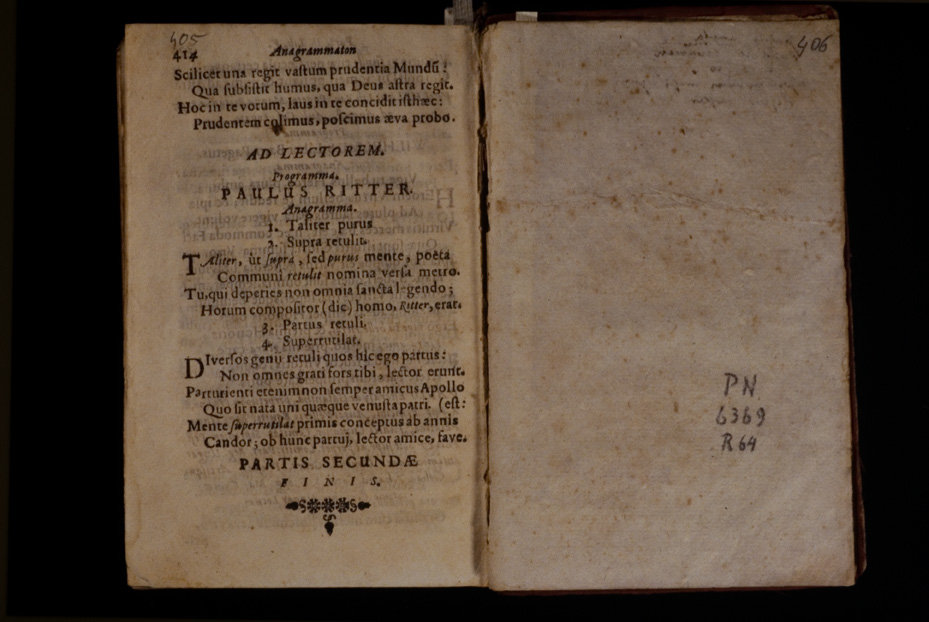 405
414 Anagrammaton
Scilicet una regit vastum prudentia Mundũ:
Qua subsistit humus, qua Deus astra regit.
Hoc in te votum, laus in te concidit isthæc:
Prudentem colimus, poscimus æva probo.
AD LECTOREM.
Programma.
PAULUS RITTER.
Anagramma.
1. Taliter purus
2. Supra retulit.
TAliter, ùt supra, sed purus mente, poëta
Communi retulit nomina versa metro.
Tu, qui deperies non omnia sancta legendo;
Horum compositor (dic) homo, Ritter, erat.
3. Partus retuli.
4. Superrutilat.
DIversos genii retuli quos hîc ego partus:
Non omnes grati fors tibi, lector erunt.
Parturienti etenim non semper amicus Apollo
Quo sit nata uni quæque venusta patri. (est:
Mente superrutilat primis conceptus ab annis
Candor; ob hunc partuj, lector amice, fave.
PARTIS SECUNDÆ
FINIS.
406
PN
6369
R64